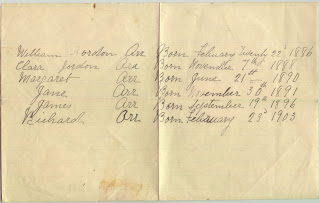 William Gordon Orr Born Febuary Twenty 22d 1886
Clara Gordon Orr Born November 7th 1888
Margaret Orr Born June 21st 1890
Jane Orr Born November 30th 1891
James Orr Born September 19th 1896
Richard Orr Born Febuary 23d 1903